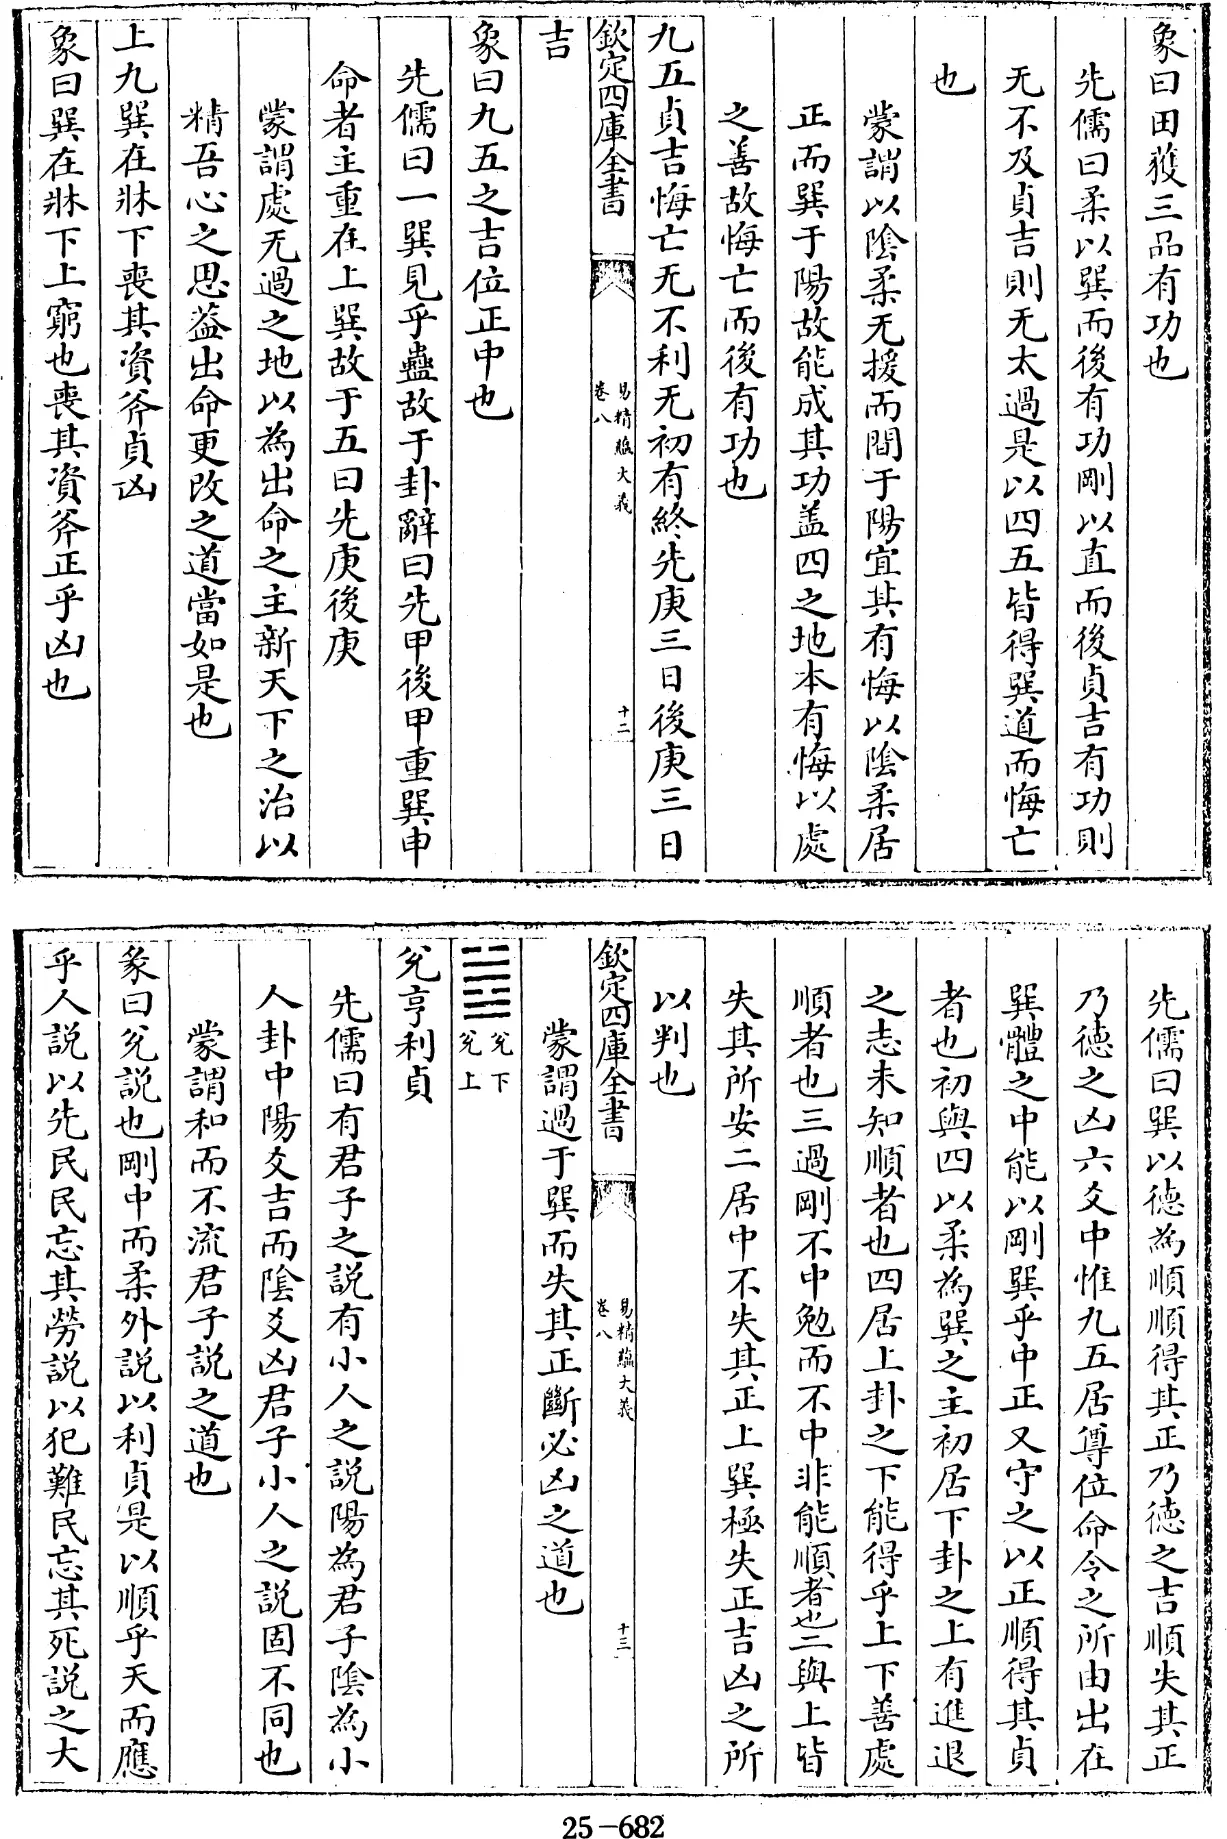 象曰田獲三品有功也
先儒曰柔以巽而後有功剛以直而後貞吉有功則
无不及貞吉則无太過是以四五皆得巽道而悔亡
也
蒙謂以陰柔无援而間于陽宜其有悔以陰柔居
正而巽于陽故能成其功盖四之地本有悔以處
之善故悔亡而後有功也
九五貞吉悔亡无不利无初有終先庚三日後庚三日
欽定四庫全書
易精藴大義
卷八
十二
吉
象曰九五之吉位正中也
先儒曰一巽見乎蠱故于卦辭曰先甲後甲重巽申
命者主重在上巽故于五曰先庚後庚
蒙謂處无過之地以為出命之主新天下之治以
精吾心之思葢出命更改之道當如是也
上九巽在牀下喪其資斧貞凶
象曰巽在牀下上窮也喪其資斧正乎凶也
先儒曰巽以德為順順得其正乃德之吉順失其正
乃德之凶六爻中惟九五居尊位命令之所由出在
巽體之中能以剛巽乎中正又守之以正順得其貞
者也初與四以柔為巽之主初居下卦之上有進退
之志未知順者也四居上卦之下能得乎上下善處
順者也三過剛不中勉而不中非能順者也二與上皆
失其所安二居中不失其正上巽極失正吉凶之所
以判也
欽定四庫全書
易精藴大義
卷八
十三
蒙謂過于巽而失其正斷必凶之道也
兌下
兌上
兌亨利貞
先儒曰有君子之說有小人之說陽為君子陰為小
人卦中陽爻吉而陰爻凶君子小人之說固不同也
蒙謂和而不流君子說之道也
彖曰兌說也剛中而柔外說以利貞是以順乎天而應
乎人說以先民民忘其勞說以犯難民忘其死說之大
25-682